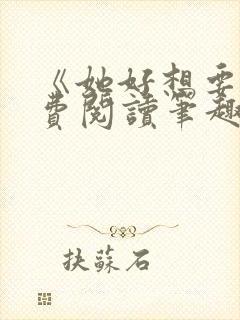 《她好想要
費閱讀筆趣
抉蘇石